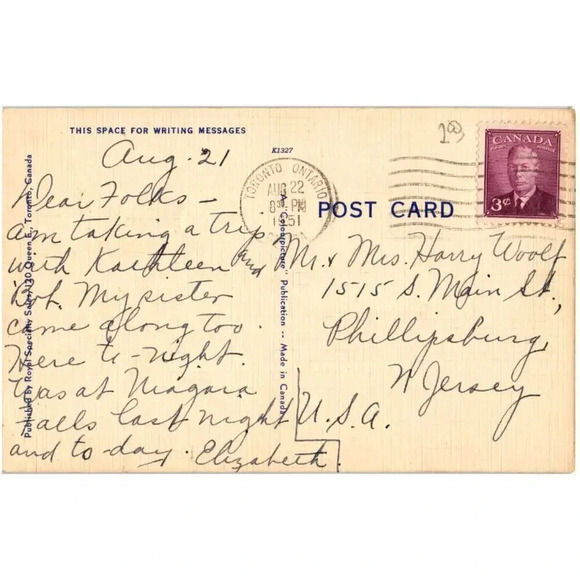 THIS SPACE FOR WRITING MESSAGES
K1327
Aug. 21
Dear Folks –
am taking a trip
with Kathleen and
Bob. My sister
came along too.
Here to-night.
Was at Niagara
Falls last night
and to-day. Elizabeth.
Published by Royal Specialty Sales, 120 Queen E., Toronto, Canada
A "Colourpicture" Publication — Made in Canada
TORONTO ONTARIO
AUG 22
8 PM
1951
POST CARD
CANADA
3¢
Mr. & Mrs. Harry Woolf
1515 S. Main St.,
Phillipsburg,
N Jersey
U.S.A.